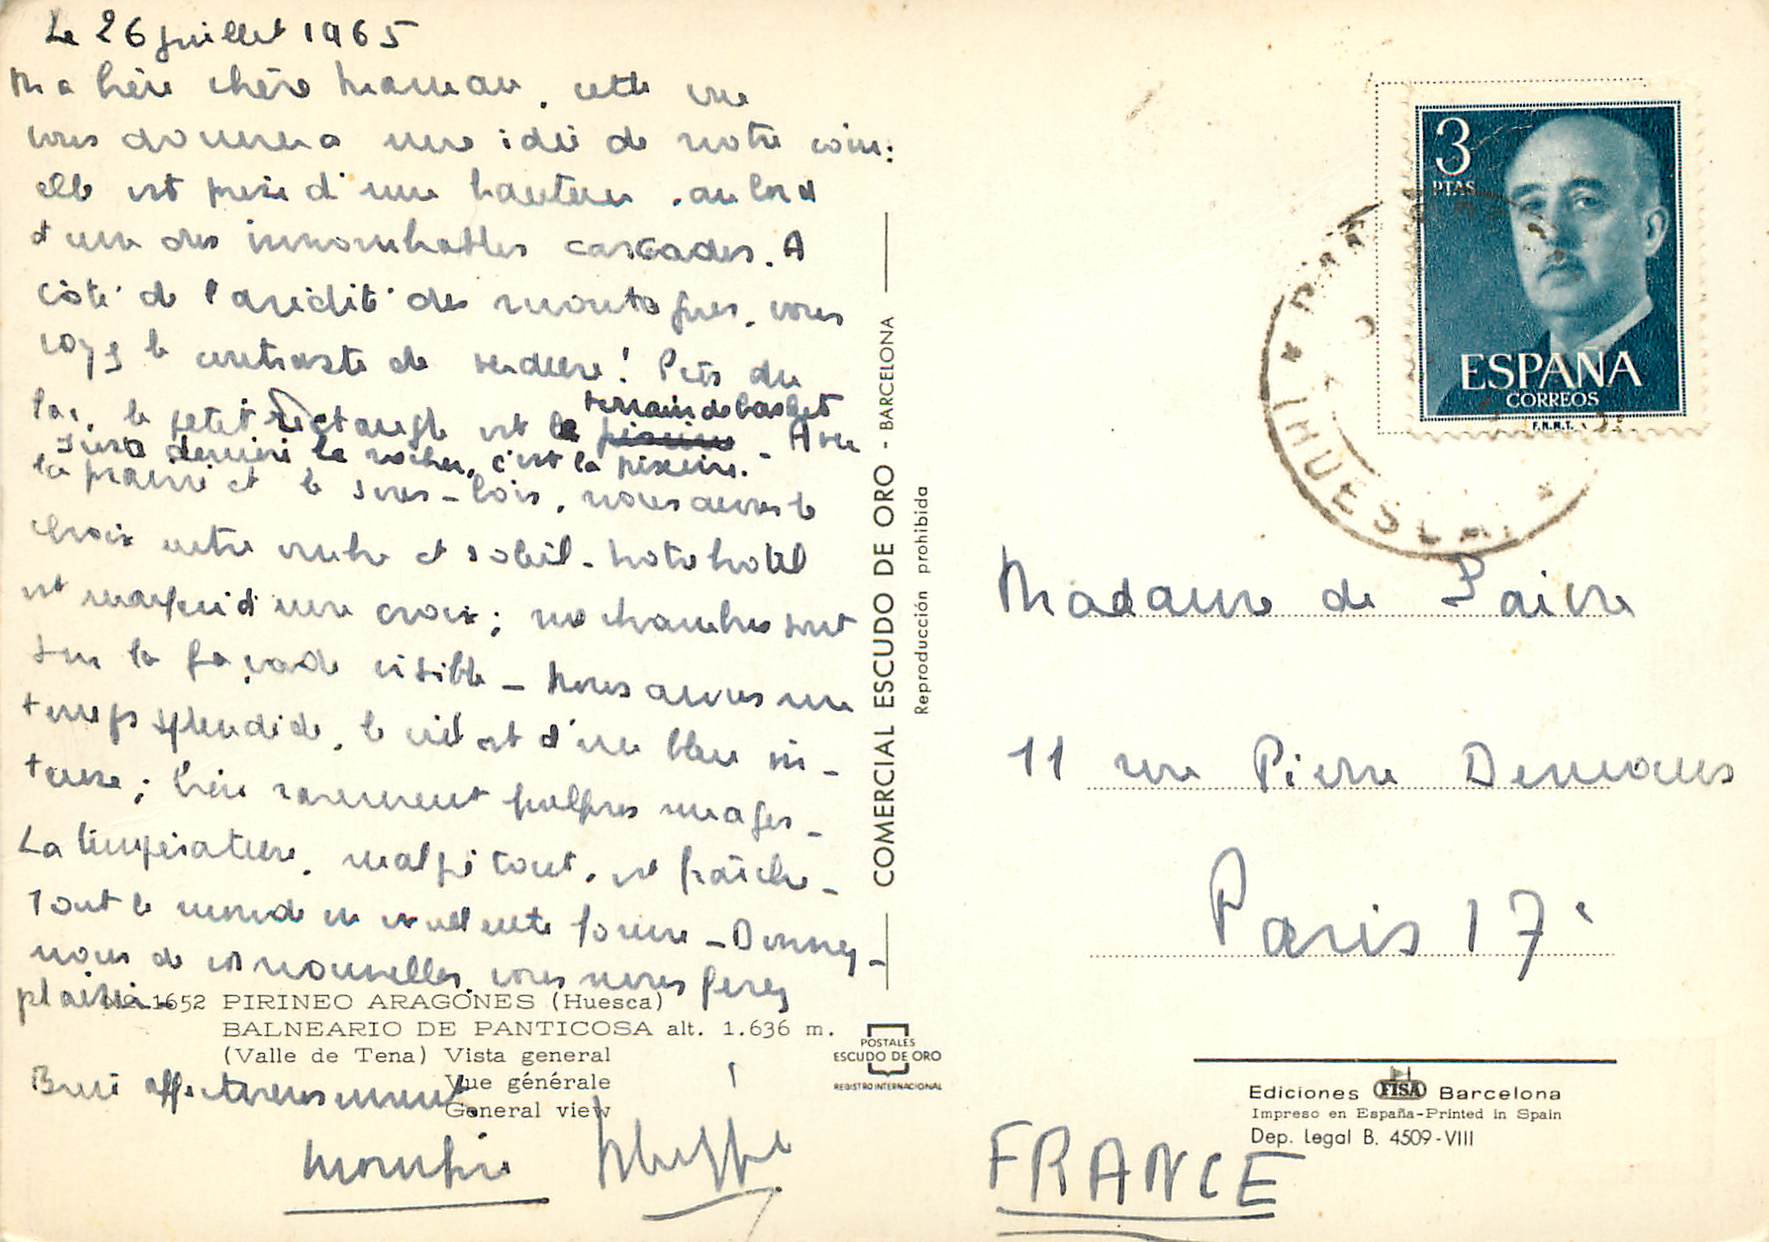 Le 26 juillet 1965
Ma bien chère Maman, cette vue
vous donnera une idée de notre coin:
elle est prise d'une hauteur, au bord
d'une des innombrables cascades. A
côté de l'aridité des montagnes, vous
voyez le contraste de verdure! Près du
lac, le petit rectangle est le piscine terrain de basket - Avec
Juste derrière le rocher, c'est la piscine.
la prairie et le sous-bois, nous avons le
choix entre ombre et soleil - Notre hôtel
est marqué d'une croix; nos chambres sont
sur la façade visible - Nous avons un
temps splendide, le ciel est d'un bleu in-
tense; bien rarement quelques nuages -
La température, malgré tout, est fraîche -
Tout le monde en excellente forme - Donnez-
nous de vos nouvelles, vous nous ferez
plaisir -
Bien affectueusement
1652 PIRINEO ARAGONES (Huesca)
BALNEARIO DE PANTICOSA alt. 1.636 m.
(Valle de Tena) Vista general
Vue générale
General view
COMERCIAL ESCUDO DE ORO - BARCELONA
Reproducción prohibida
POSTALES
ESCUDO DE ORO
REGISTRO INTERNACIONAL
3
PTAS
ESPAÑA
CORREOS
F.N.M.T.
(HUESCA)
Madame de
11 rue Pierre Demours
Paris 17e
FRANCE
Ediciones FISA Barcelona
Impreso en España-Printed in Spain
Dep. Legal B. 4509-VIII